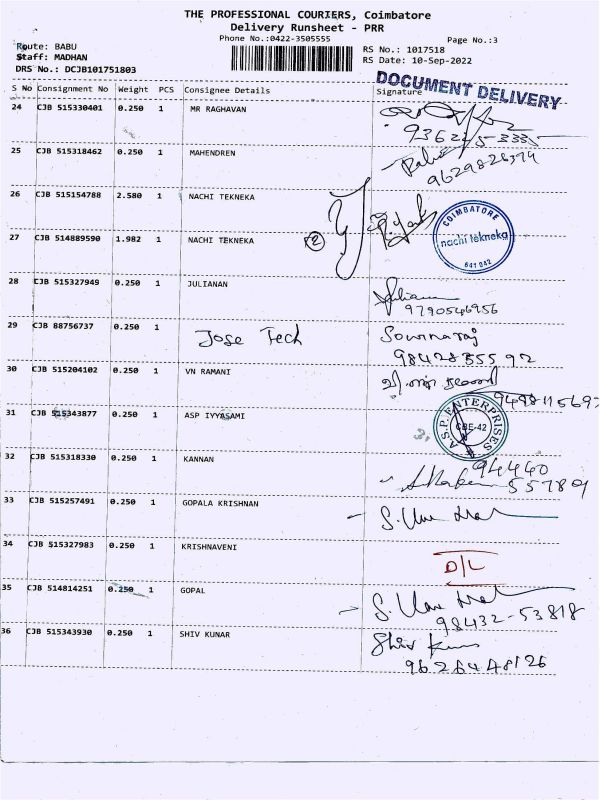 THE PROFESSIONAL COURIERS, Coimbatore
Delivery Runsheet - PRR
Phone No.:0422-3505555
Page No.:3
Route: BABU
RS No.: 1017518
Staff: MADHAN
RS Date: 10-Sep-2022
DRS No.: DCJB101751803
DOCUMENT DELIVERY
S No Consignment No Weight PCS Consignee Details Signature
24 CJB 515330401 0.250 1 MR RAGHAVAN
25 CJB 515318462 0.250 1 MAHENDREN
9629826374
26 CJB 515154788 2.580 1 NACHI TEKNEKA
27 CJB 514889590 1.982 1 NACHI TEKNEKA
2
COIMBATORE
nachi tekneka
641 042
28 CJB 515327949 0.250 1 JULIANAN
Juliana
9790546956
29 CJB 88756737 0.250 1 Jose Tech
9842835592
30 CJB 515204102 0.250 1 VN RAMANI
31 CJB 515343877 0.250 1 ASP IYYASAMI
A.S.P. ENTERPRISES
CBE-42
32 CJB 515318330 0.250 1 KANNAN
94440
557809
33 CJB 515257491 0.250 1 GOPALA KRISHNAN
34 CJB 515327983 0.250 1 KRISHNAVENI
D/L
35 CJB 514814251 0.250 1 GOPAL
98432-53818
36 CJB 515343930 0.250 1 SHIV KUNAR
Shiv Kum
9626448126